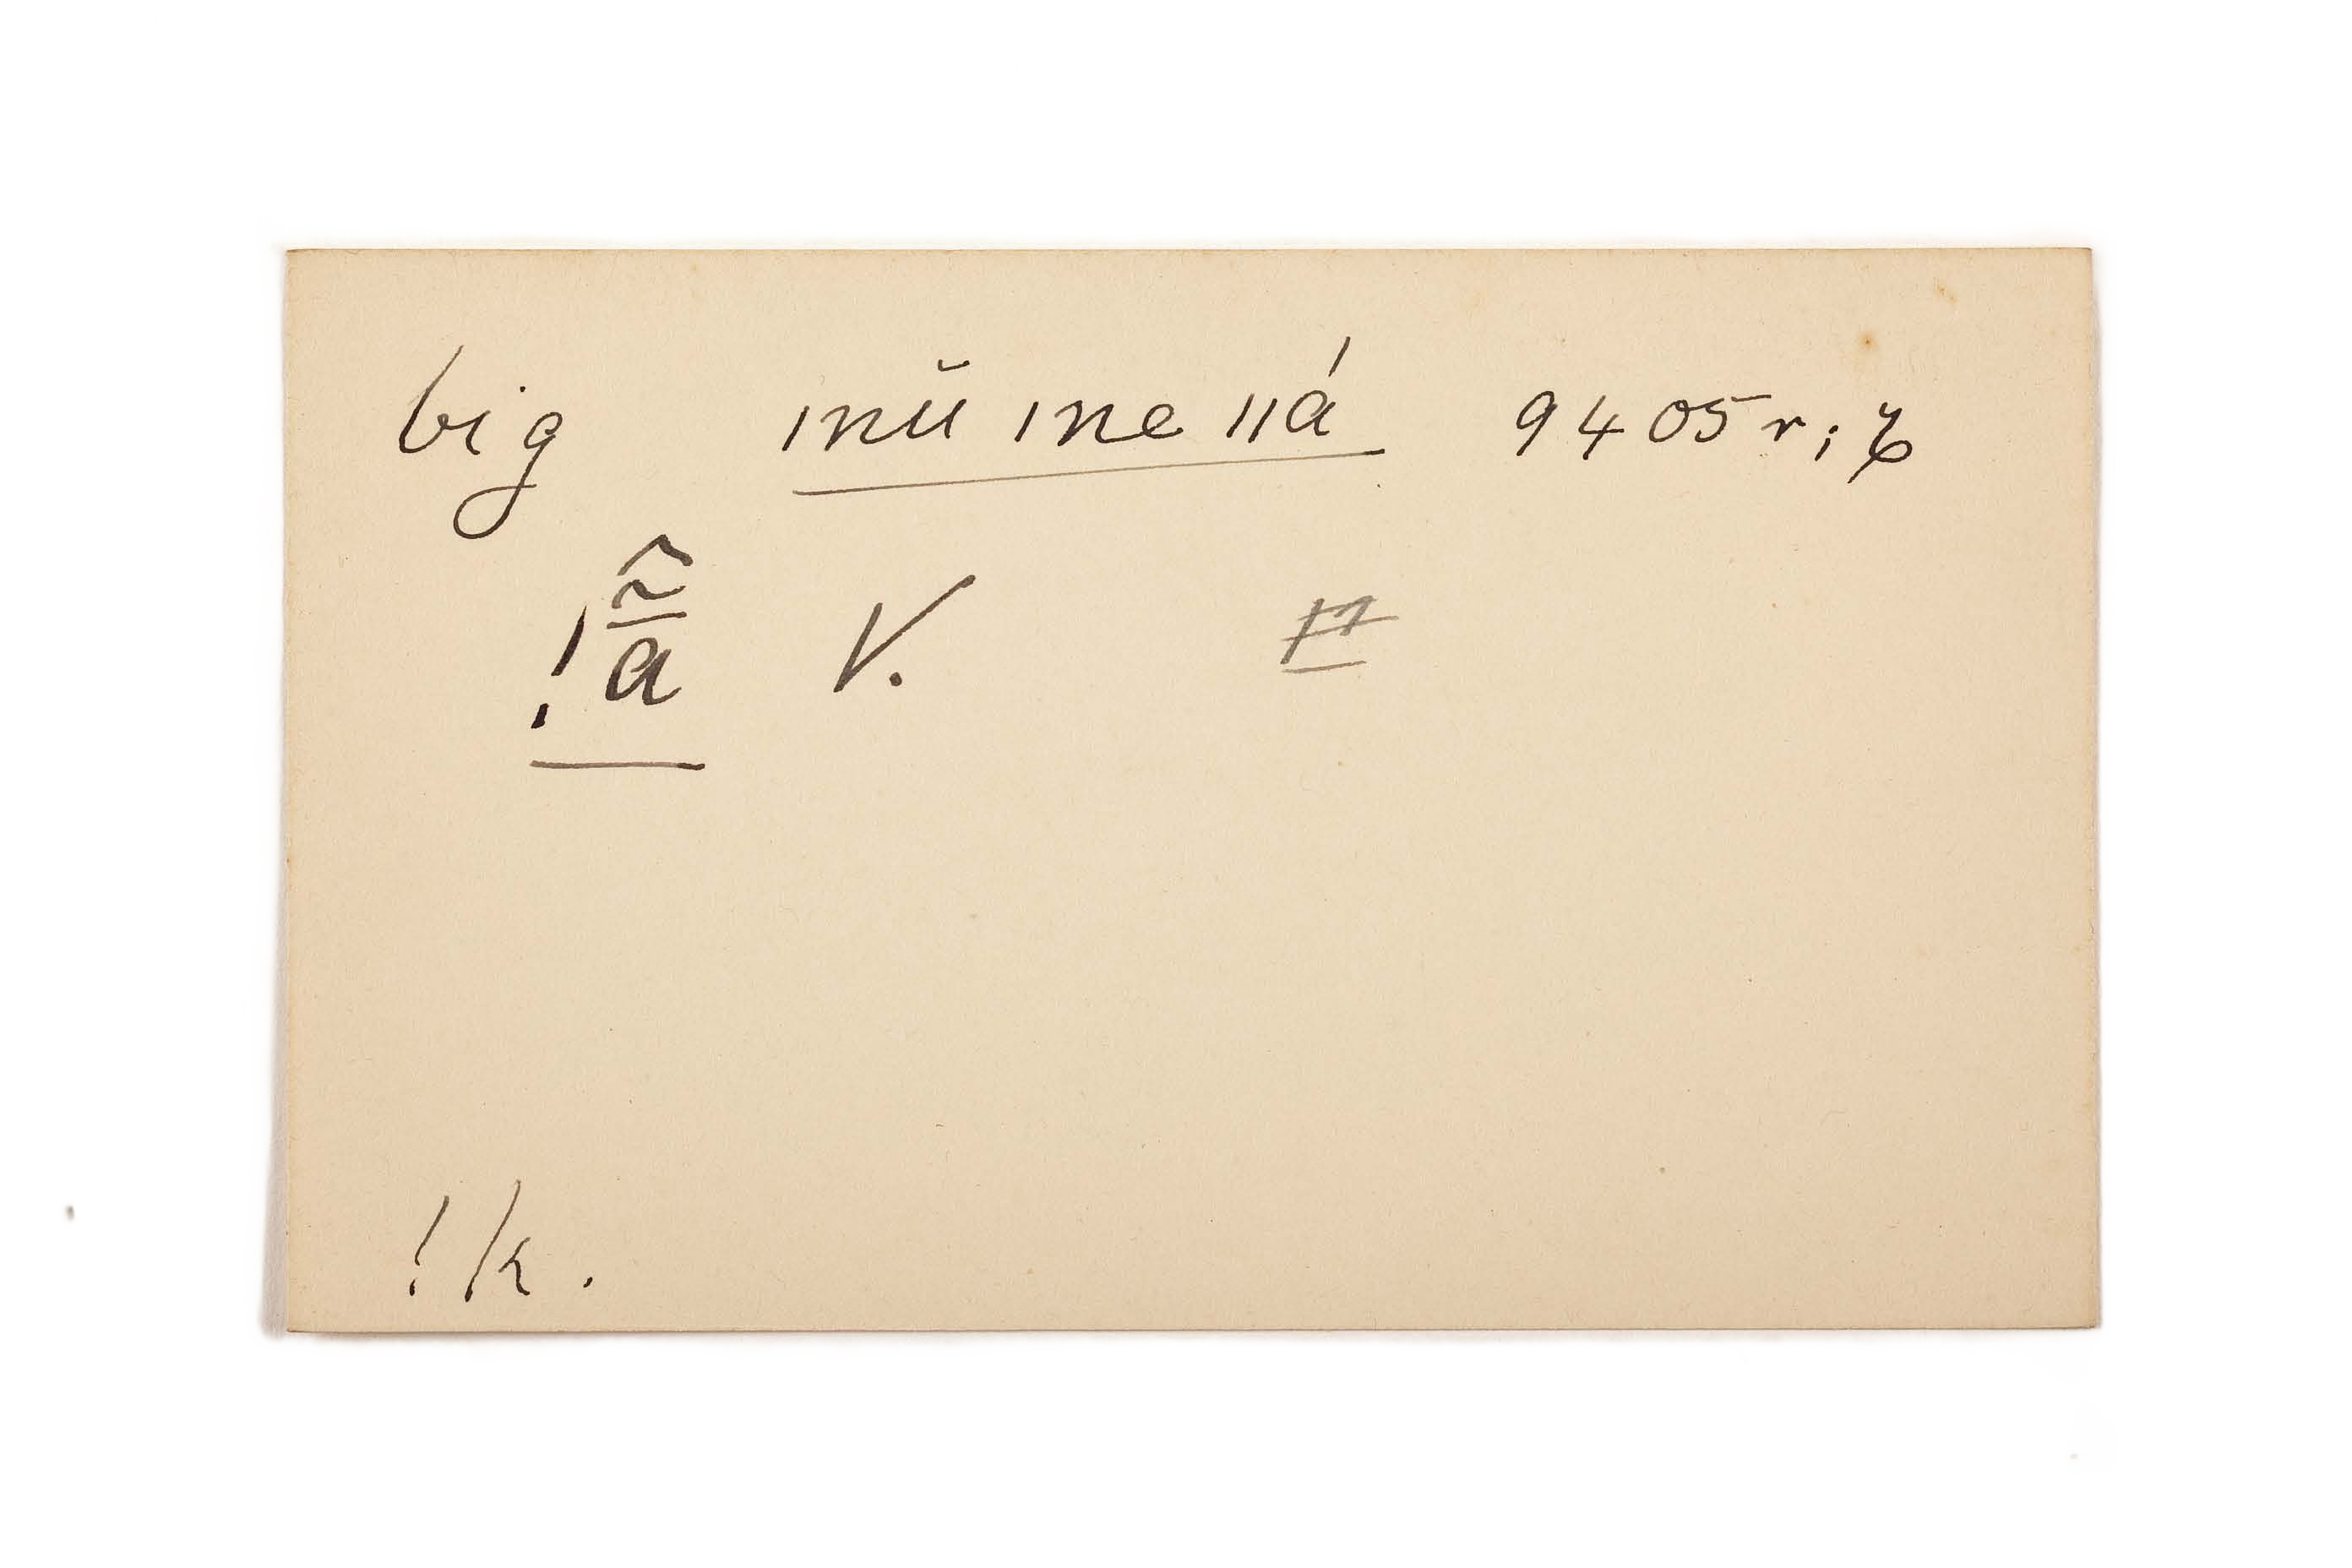 big ınŭ ıne ııá 9405 r;
!ã̄̂ V.
!k.